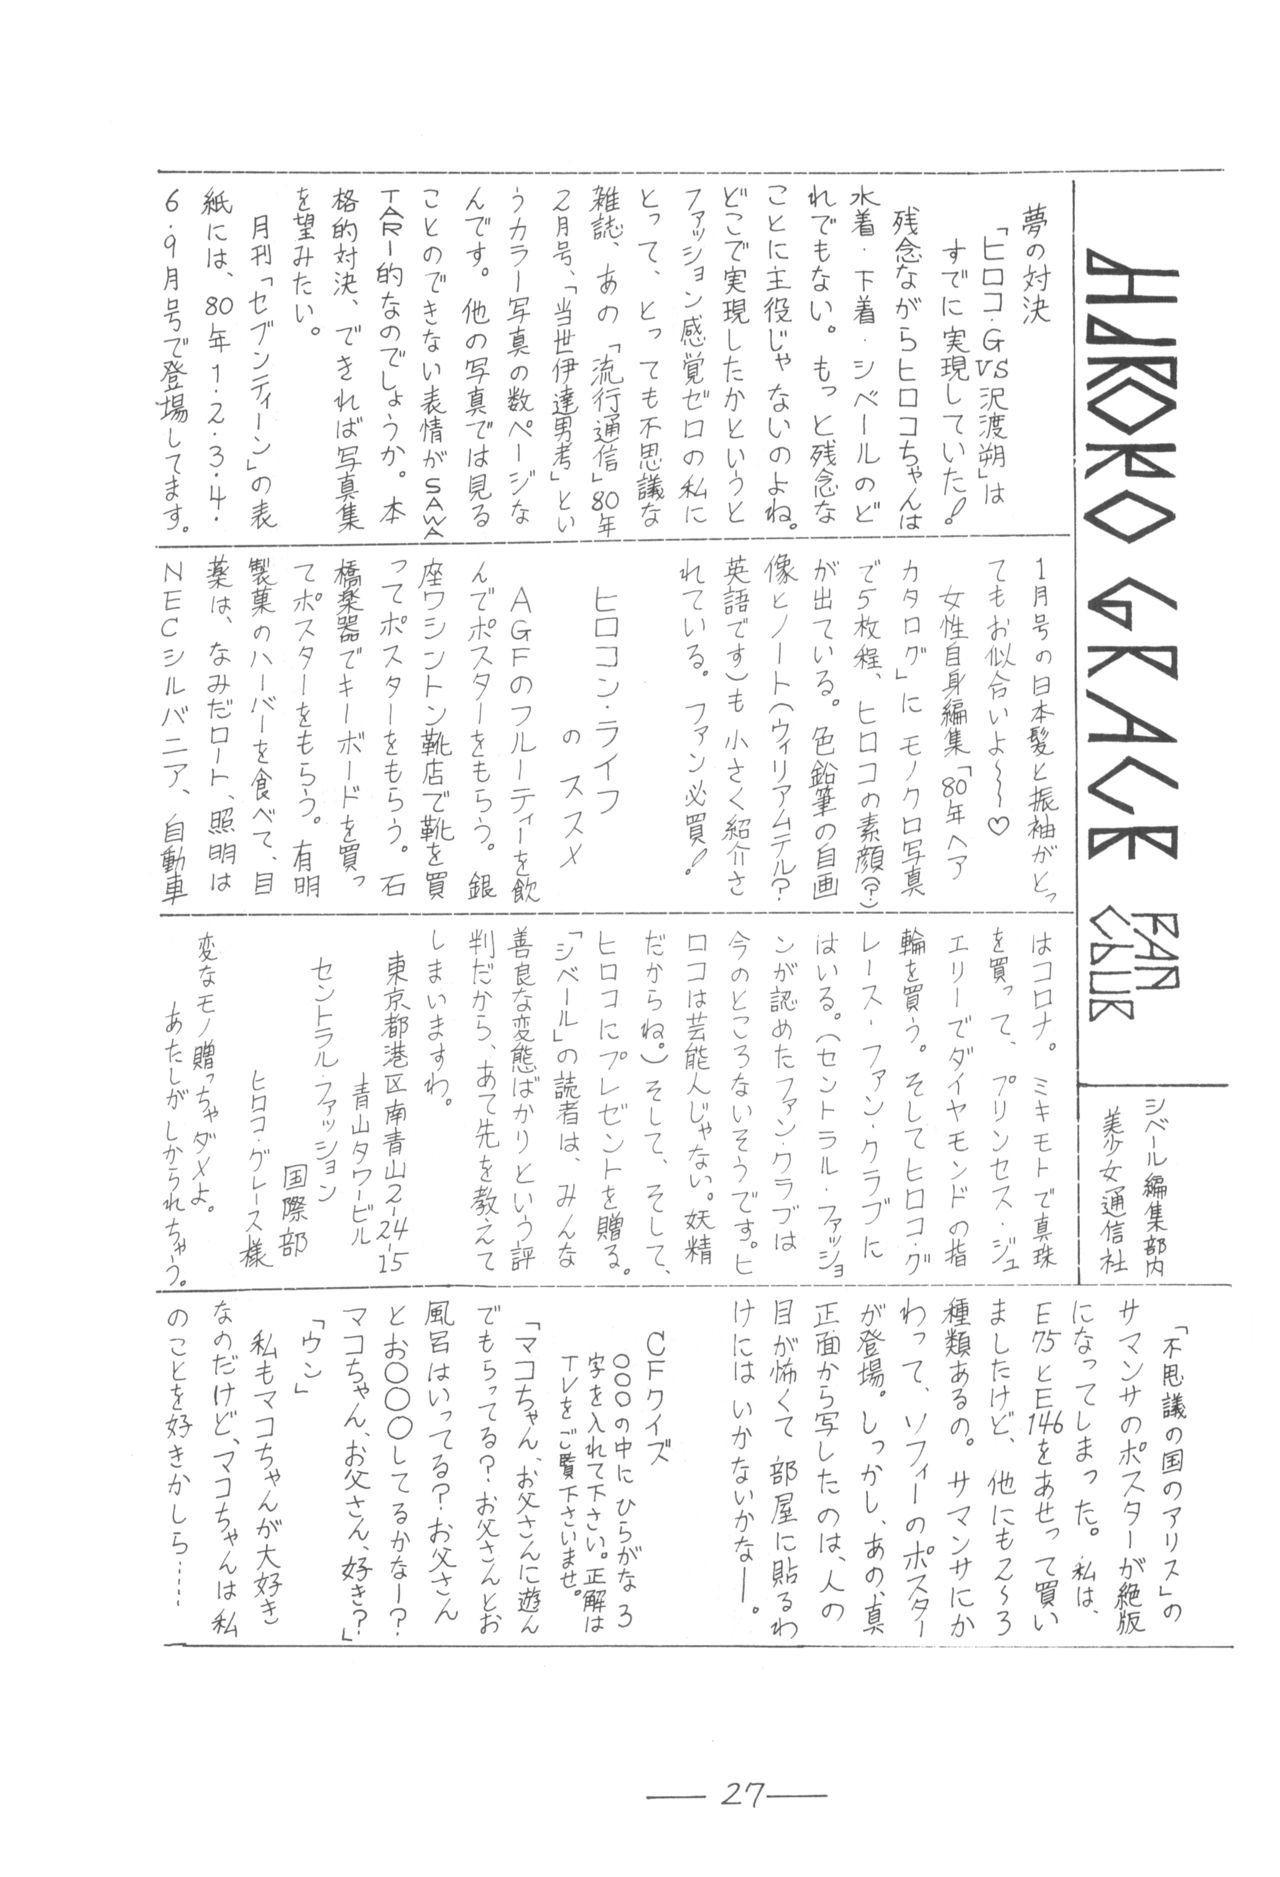 HIROKO GRACE
FAN
CLUB
シベール編集部内
美少女通信社
夢の対決
「ヒロコ・GVS沢渡朔」は
すでに実現していた!
残念ながらヒロコちゃんは
水着・下着・シベールのど
れでもない。もっと残念な
ことに主役じゃないのよね。
どこで実現したかというと
ファッション感覚ゼロの私に
とって、とっても不思議な
雑誌、あの「流行通信」80年
2月号、「当世伊達男考」とい
うカラー写真の数ページな
んです。他の写真では見る
ことのできない表情がSAWA
TARI的なのでしょうか。本
格的対決、できれば写真集
を望みたい。
月刊「セブンティーン」の表
紙には、80年1・2・3・4・
6・9月号で登場してます。
1月号の日本髪と振袖がとっ
てもお似合いよ〜〜♡
女性自身編集「80年ヘア
カタログ」にモノクロ写真
で5枚程、ヒロコの素顔(?)
が出ている。色鉛筆の自画
像とノート(ウィリアムテル?
英語です)も小さく紹介さ
れている。ファン必買!
ヒロコン・ライフ
のススメ
AGFのフルーティーを飲
んでポスターをもらう。銀
座ワシントン靴店で靴を買
ってポスターをもらう。石
橋楽器でキーボードを買っ
てポスターをもらう。有明
製菓のハーバーを食べて、目
薬は、なみだロート、照明は
NECシルバニア、自動車
はコロナ。ミキモトで真珠
を買って、プリンセス・ジュ
エリーでダイヤモンドの指
輪を買う。そしてヒロコ・グ
レース・ファン・クラブに
はいる。(セントラル・ファッショ
ンが認めたファン・クラブは
今のところないそうです。ヒ
ロコは芸能人じゃない。妖精
だからね。)そして、そして、
ヒロコにプレゼントを贈る。
「シベール」の読者は、みんな
善良な変態ばかりという評
判だから、あて先を教えて
しまいますわ。
東京都港区南青山2-24-15
青山タワービル
セントラル・ファッション
国際部
ヒロコ・グレース様
変なモノ贈っちゃダメよ。
あたしがしかられちゃう。
「不思議の国のアリス」の
サマンサのポスターが絶版
になってしまった。私は、
E75とE146をあせって買い
ましたけど、他にも2〜3
種類あるの。サマンサにか
わって、ソフィーのポスター
が登場。しっかし、あの、真
正面から写したのは、人の
目が怖くて部屋に貼るわ
けにはいかないかなー。
CFクイズ
○○○の中にひらがな3
字を入れて下さい。正解は
TVをご覧下さいませ。
「マコちゃん、お父さんに遊ん
でもらってる?お父さんとお
風呂はいってる?お父さん
とお○○○してるかなー?
マコちゃん、お父さん、好き?」
「ウン」
私もマコちゃんが大好き
なのだけど、マコちゃんは私
のことを好きかしら……
27